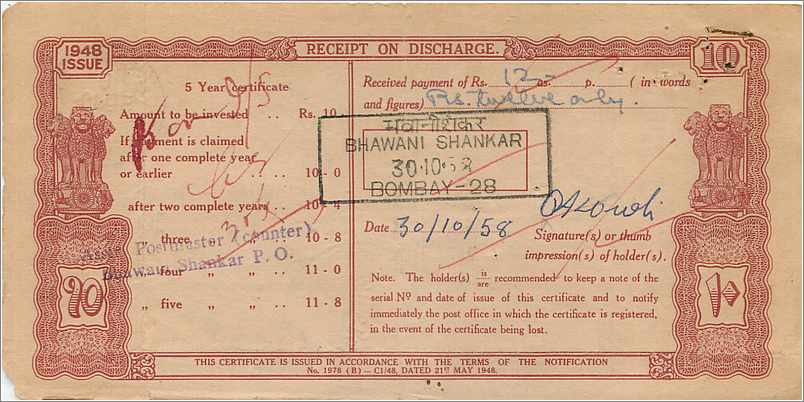 1948
ISSUE
RECEIPT ON DISCHARGE.
10
5 Year certificate
Amount to be invested .. Rs. 10
If payment is claimed
after one complete year
or earlier .. 10 - 0
after two complete years .. 10 - 4
„ three „ „ .. 10 - 8
„ four „ „ .. 11 - 0
„ five „ „ .. 11 - 8
Asstt. Postmaster (counter)
Bhawani Shankar P. O.
Received payment of Rs. 12 as. p. ( in words
and figures) Rs. twelve only.
भवानीशंकर
BHAWANI SHANKAR
30.10.58
BOMBAY-28
Date 30/10/58
Signature(s) or thumb
impression(s) of holder(s).
Note. The holder(s) is/are recommended to keep a note of the
serial Nº and date of issue of this certificate and to notify
immediately the post office in which the certificate is registered,
in the event of the certificate being lost.
१०
THIS CERTIFICATE IS ISSUED IN ACCORDANCE WITH THE TERMS OF THE NOTIFICATION
No. 1978 (B) — C1/48, DATED 21ST MAY 1948.